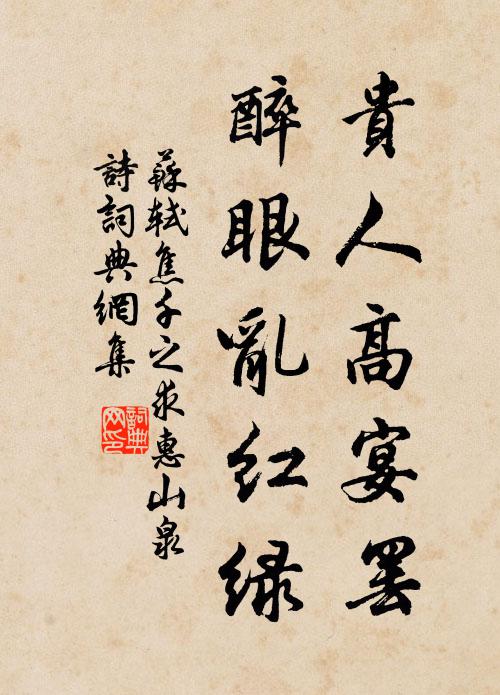 貴人高宴罷
醉眼亂紅綠
蘇軾焦千之求惠山泉
詩詞典網集
詞典网印